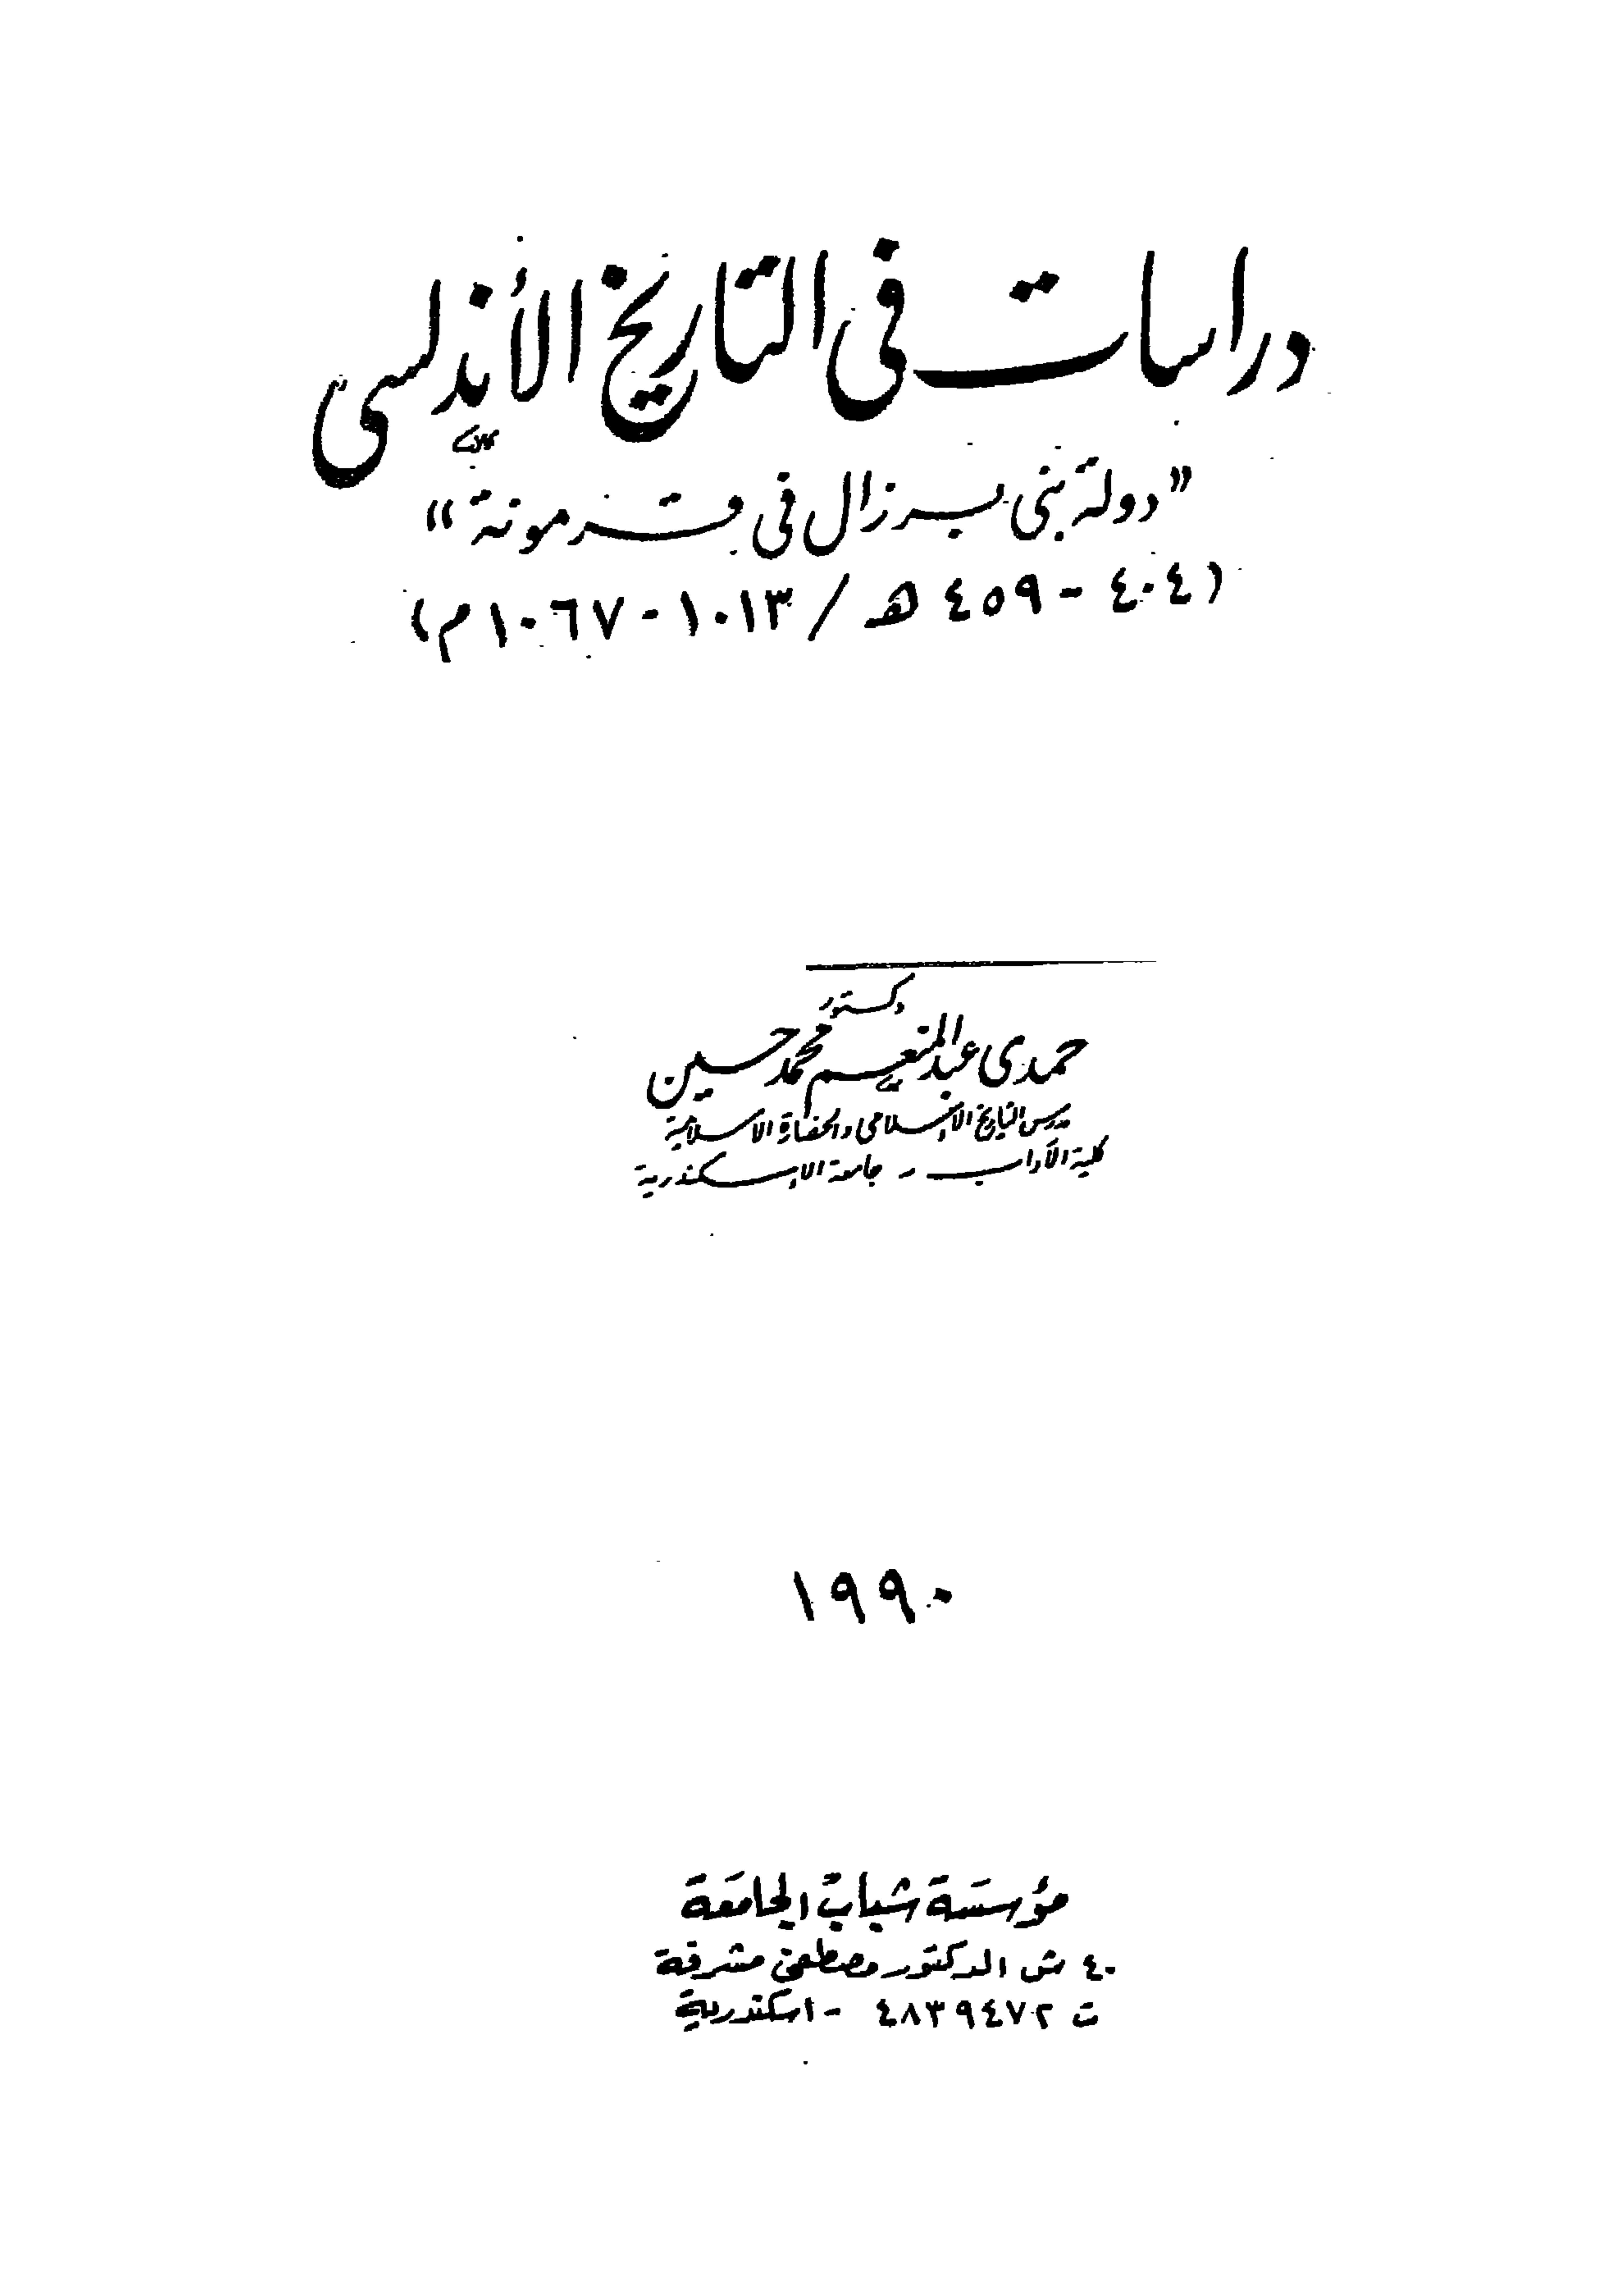 دراسات في التاريخ الأندلسى
"دولة بنى برزال فى قرمونة"
(٤٠٤ - ٤٥٩ هـ / ١٠١٣ - ١٠٦٧ م)
دكتور
حمدى عبد المنعم محمد حسين
مدرس التاريخ الإسلامى والحضارة الاسلامية
كلية الآداب - جامعة الإسكندرية
١٩٩٠
مؤسسة شباب الجامعة
٤٠ ش الدكتور مصطفى مشرفة
ت ٤٨٣٩٤٧٢ - اسكندرية